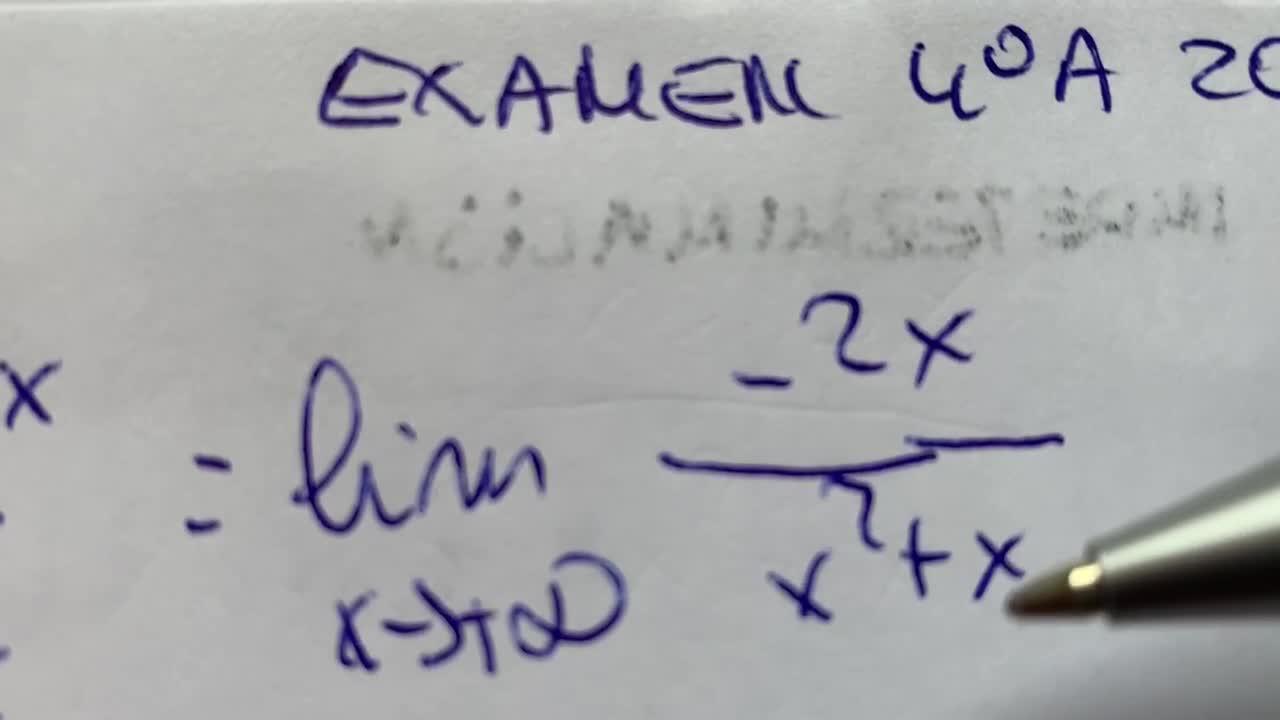 EXAMEN 4ºA 20
-2x
x = lim
x→+∞ x²+x